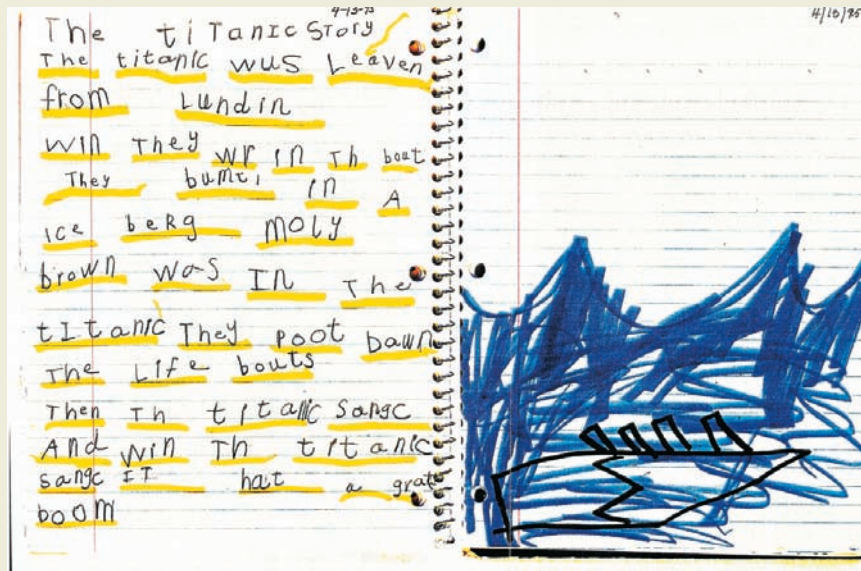 4-13-95
The tiTanic Story
The titanic wus Leaven
from Lundin
win They wr in Th bout
They bumti in A
ice beRg MOLy
brown was In The
tItanic They poot bawn
The Life bouts
Then Th titanic sangc
And win Th titanic
sangc IT hat a grat
boom
4/13/95